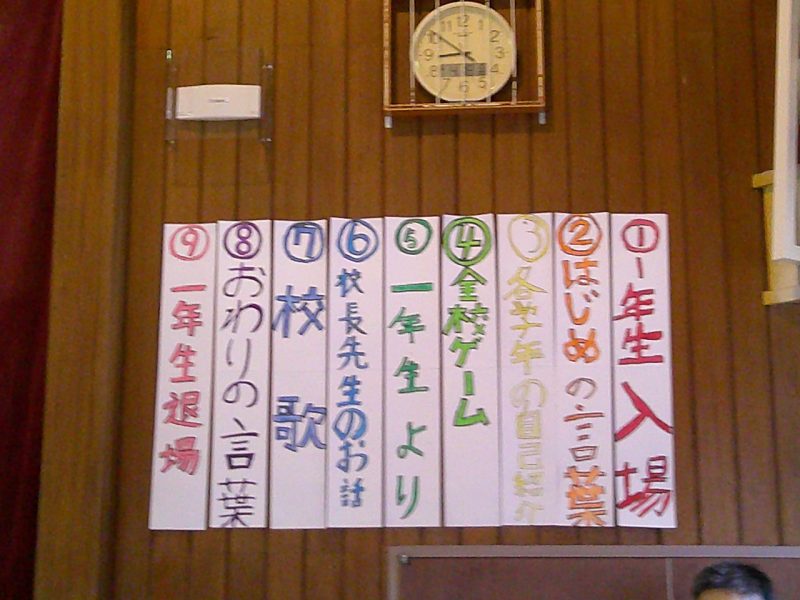 ①1年生入場
②はじめの言葉
③各学年の自己紹介
④全校ゲーム
⑤一年生より
⑥校長先生のお話
⑦校歌
⑧おわりの言葉
⑨一年生退場